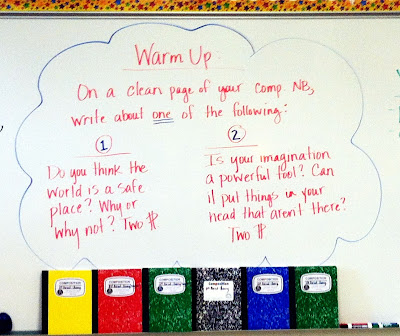 Warm Up
On a clean page of your Comp. NB,
write about one of the following:
1
Do you think the
world is a safe
place? Why or
why not? Two ¶
2
Is your imagination
a powerful tool? Can
it put things in your
head that aren't there?
Two ¶
COMPOSITION
COMPOSITION
COMPOSITION
Composition
COMPOSITION
COMPOSITION